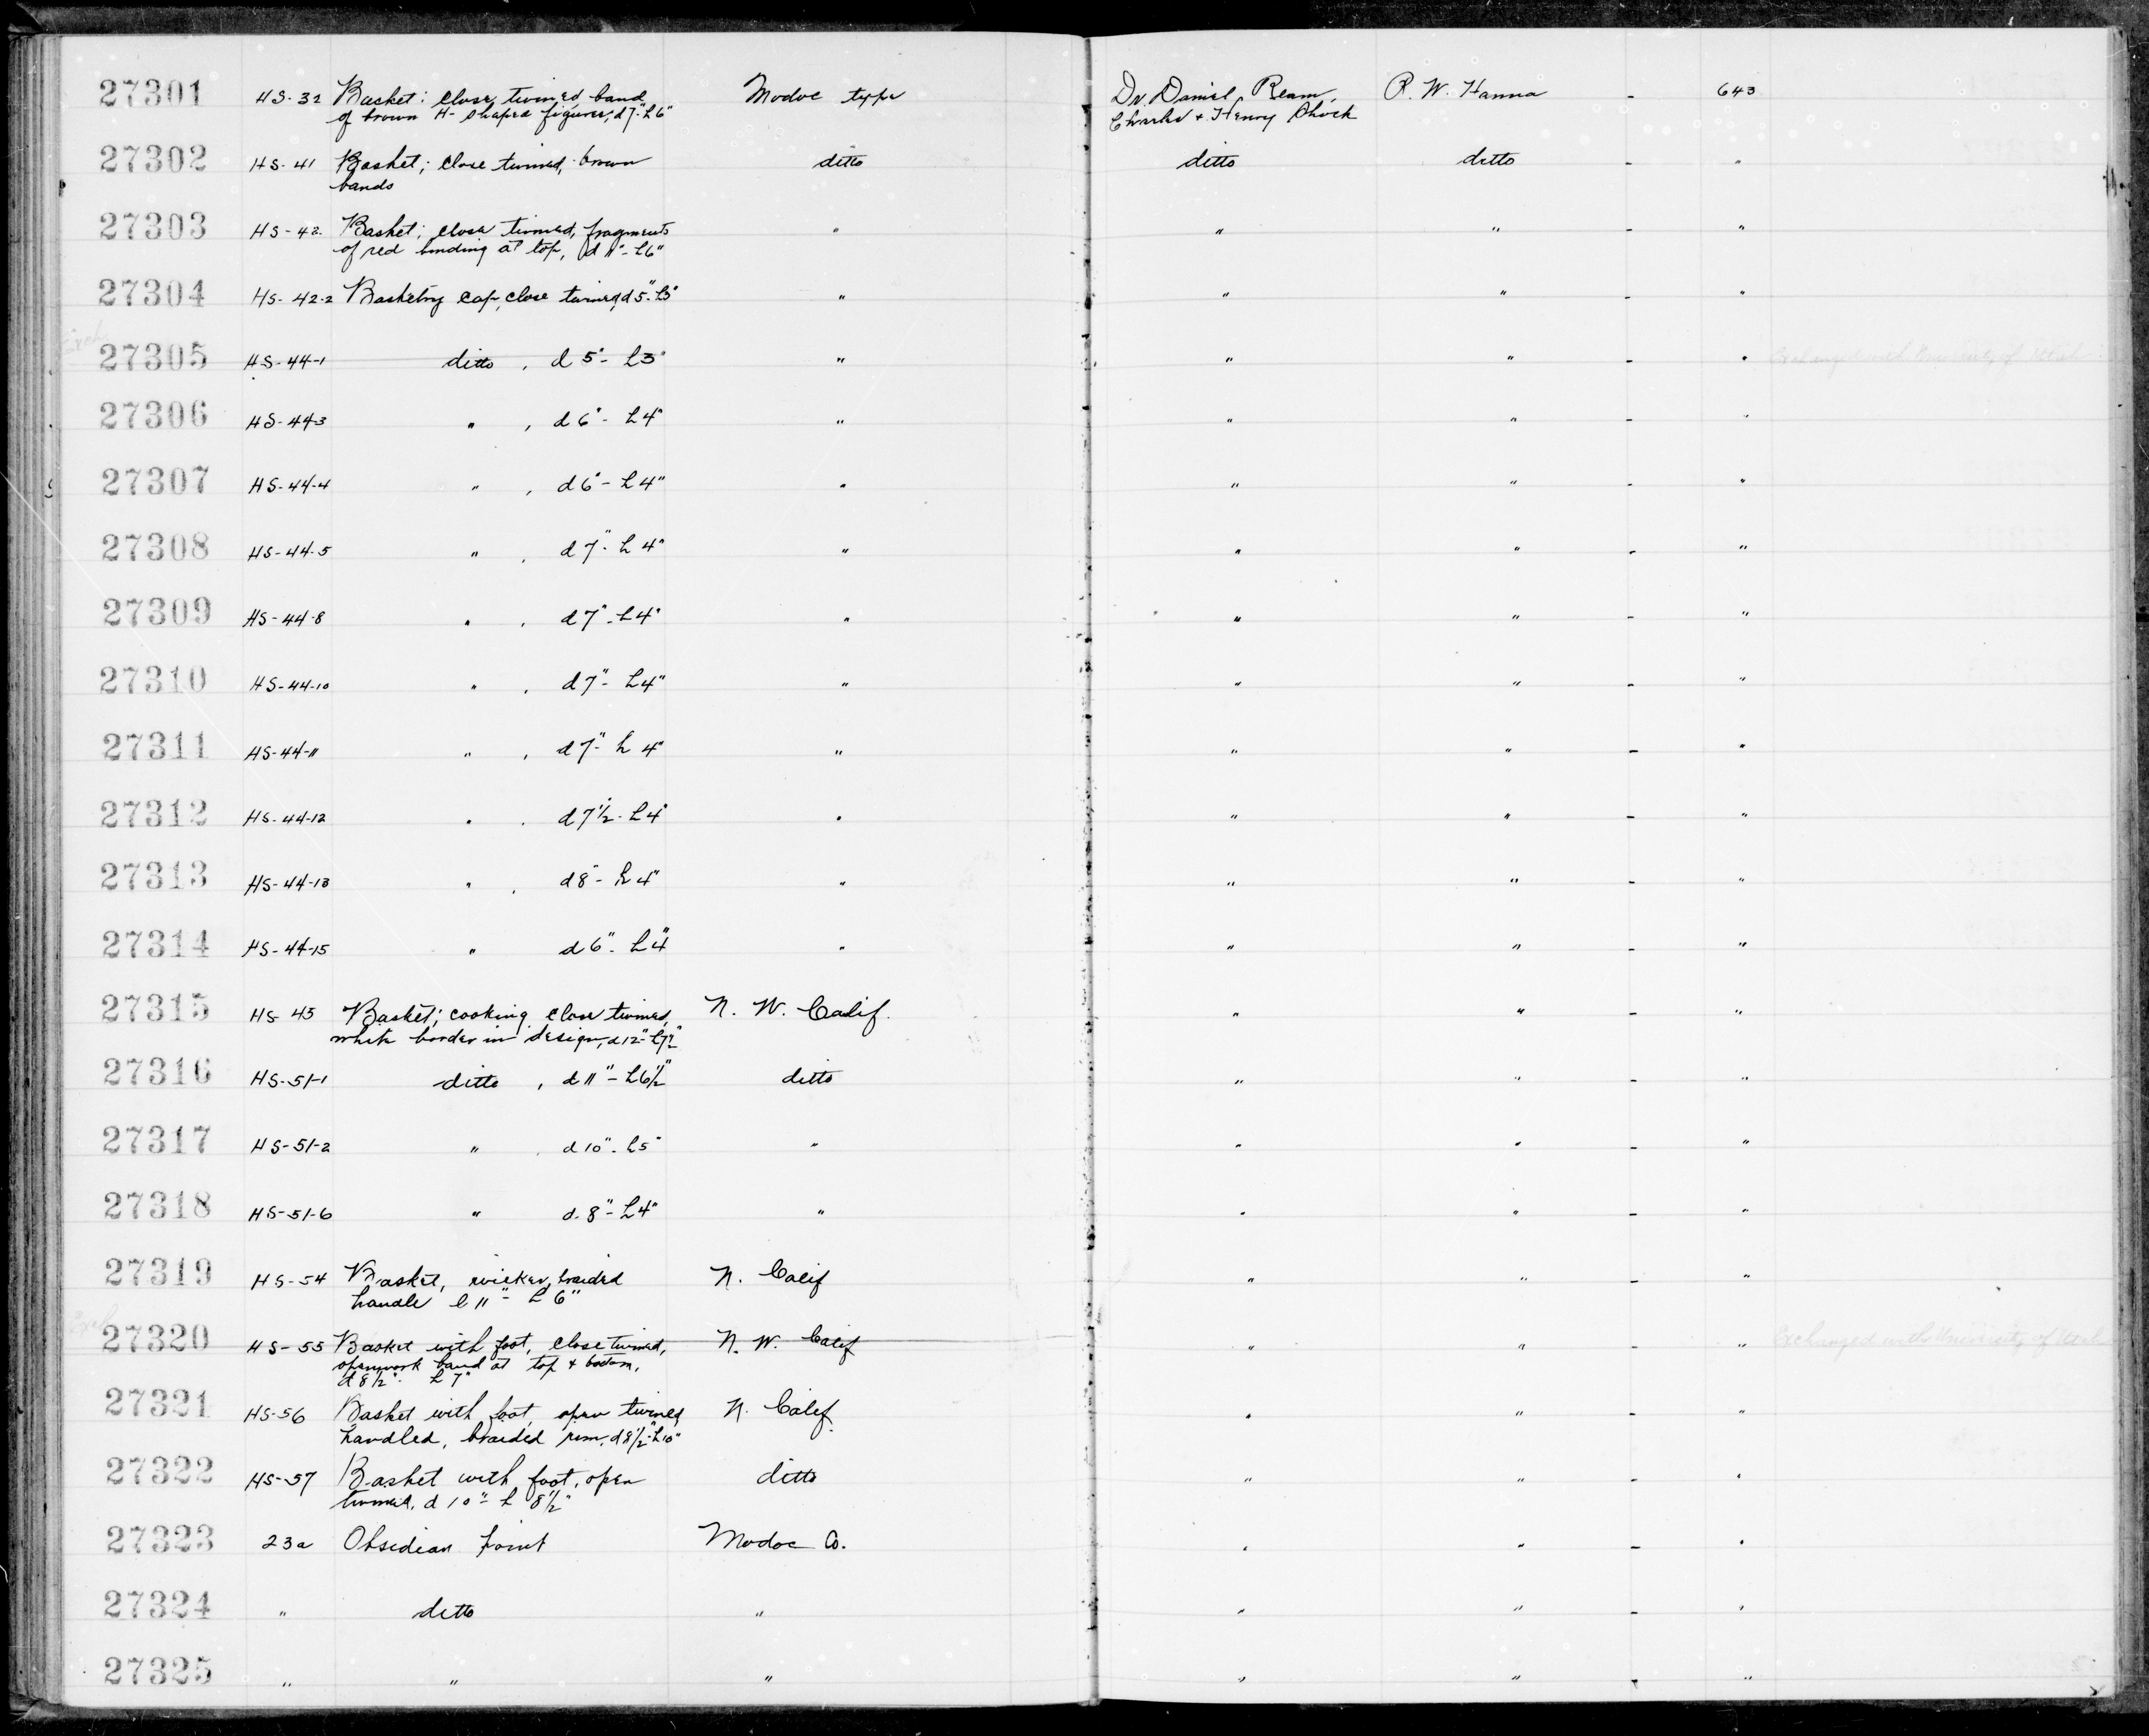 27301 HS-32 Basket; close twined, band Modoc type Dr. Daniel Ream, R. W. Hanna - 643
of brown H-shaped figures, d7"-h6" Charles + Henry Shock
27302 HS-41 Basket; close twined, brown ditto ditto ditto - "
bands
27303 HS-42 Basket; close twined, fragments " " " - "
of red binding at top, d 11"-h6"
27304 HS-42-2 Basketry cap, close twined, d5"-h3" " " " - "
Exch.
27305 HS-44-1 ditto , d 5"- h3" " " " - " Exchanged with University of Utah
27306 HS-44-3 " , d 6"- h4" " " " - "
27307 HS-44-4 " , d 6"- h4" " " " - "
27308 HS-44-5 " , d 7"- h 4" " " " - "
27309 HS-44-8 " , d 7"- h4" " " " - "
27310 HS-44-10 " , d 7"- h4" " " " - "
27311 HS-44-11 " , d 7"- h 4" " " " - "
27312 HS-44-12 " , d 7½"- h4" " " " - "
27313 HS-44-13 " , d 8"- h4" " " " - "
27314 HS-44-15 " d 6"- h4" " " " - "
27315 HS-45 Basket; cooking, close twined, N. W. Calif. " " - "
white border in design, d12"-h7½"
27316 HS-51-1 ditto , d 11"- h6½" ditto " " - "
27317 HS-51-2 " , d 10"- h5" " " " - "
27318 HS-51-6 " d. 8"- h4" " " " - "
27319 HS-54 Basket, wicker, braided N. Calif " " - "
handle l 11"- h 6"
Exch.
27320 HS-55 Basket with foot, close twined, N. W. Calif " " - " Exchanged with University of Utah
openwork band at top + bottom,
d 8½" h 7"
27321 HS-56 Basket with foot, open twined, N. Calif. " " - "
handled, braided rim, d8½"-h10"
27322 HS-57 Basket with foot, open ditto " " - "
twined, d 10"- h 8½"
27323 23a Obsidian point Modoc Co. " " - "
27324 " ditto " " " - "
27325 " " " " " - "